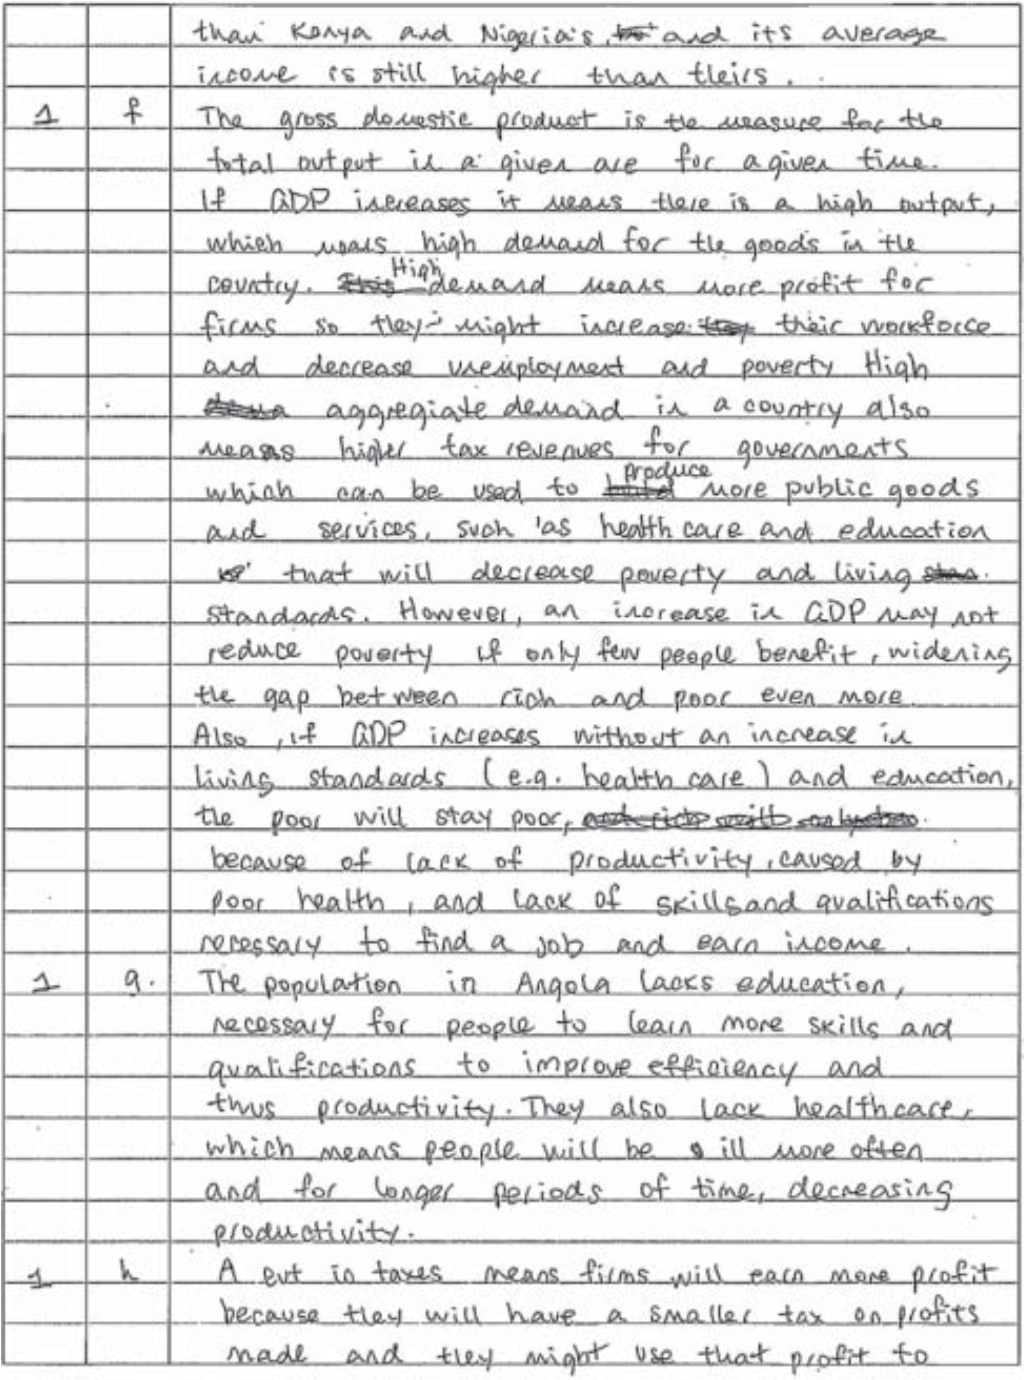 than Kenya and Nigeria's, and its average
income is still higher than theirs.
1 f The gross domestic product is the measure for the
total output in a given are for a given time.
If GDP increases it means there is a high output,
which means high demand for the goods in the
country. High demand means more profit for
firms so they might increase their workforce
and decrease unemployment and poverty High
aggregiate demand in a country also
means higher tax revenues for governments
which can be used to produce more public goods
and services, such as health care and education
that will decrease poverty and living
standards. However, an increase in GDP may not
reduce poverty if only few people benefit, widening
the gap between rich and poor even more.
Also, if GDP increases without an increase in
living standards (e.g. health care) and education,
the poor will stay poor,
because of lack of productivity, caused by
poor health, and lack of skills and qualifications
necessary to find a job and earn income.
1 g. The population in Angola lacks education,
necessary for people to learn more skills and
qualifications to improve efficiency and
thus productivity. They also lack healthcare,
which means people will be ill more often
and for longer periods of time, decreasing
productivity.
1 h A cut in taxes means firms will earn more profit
because they will have a smaller tax on profits
made and they might use that profit to